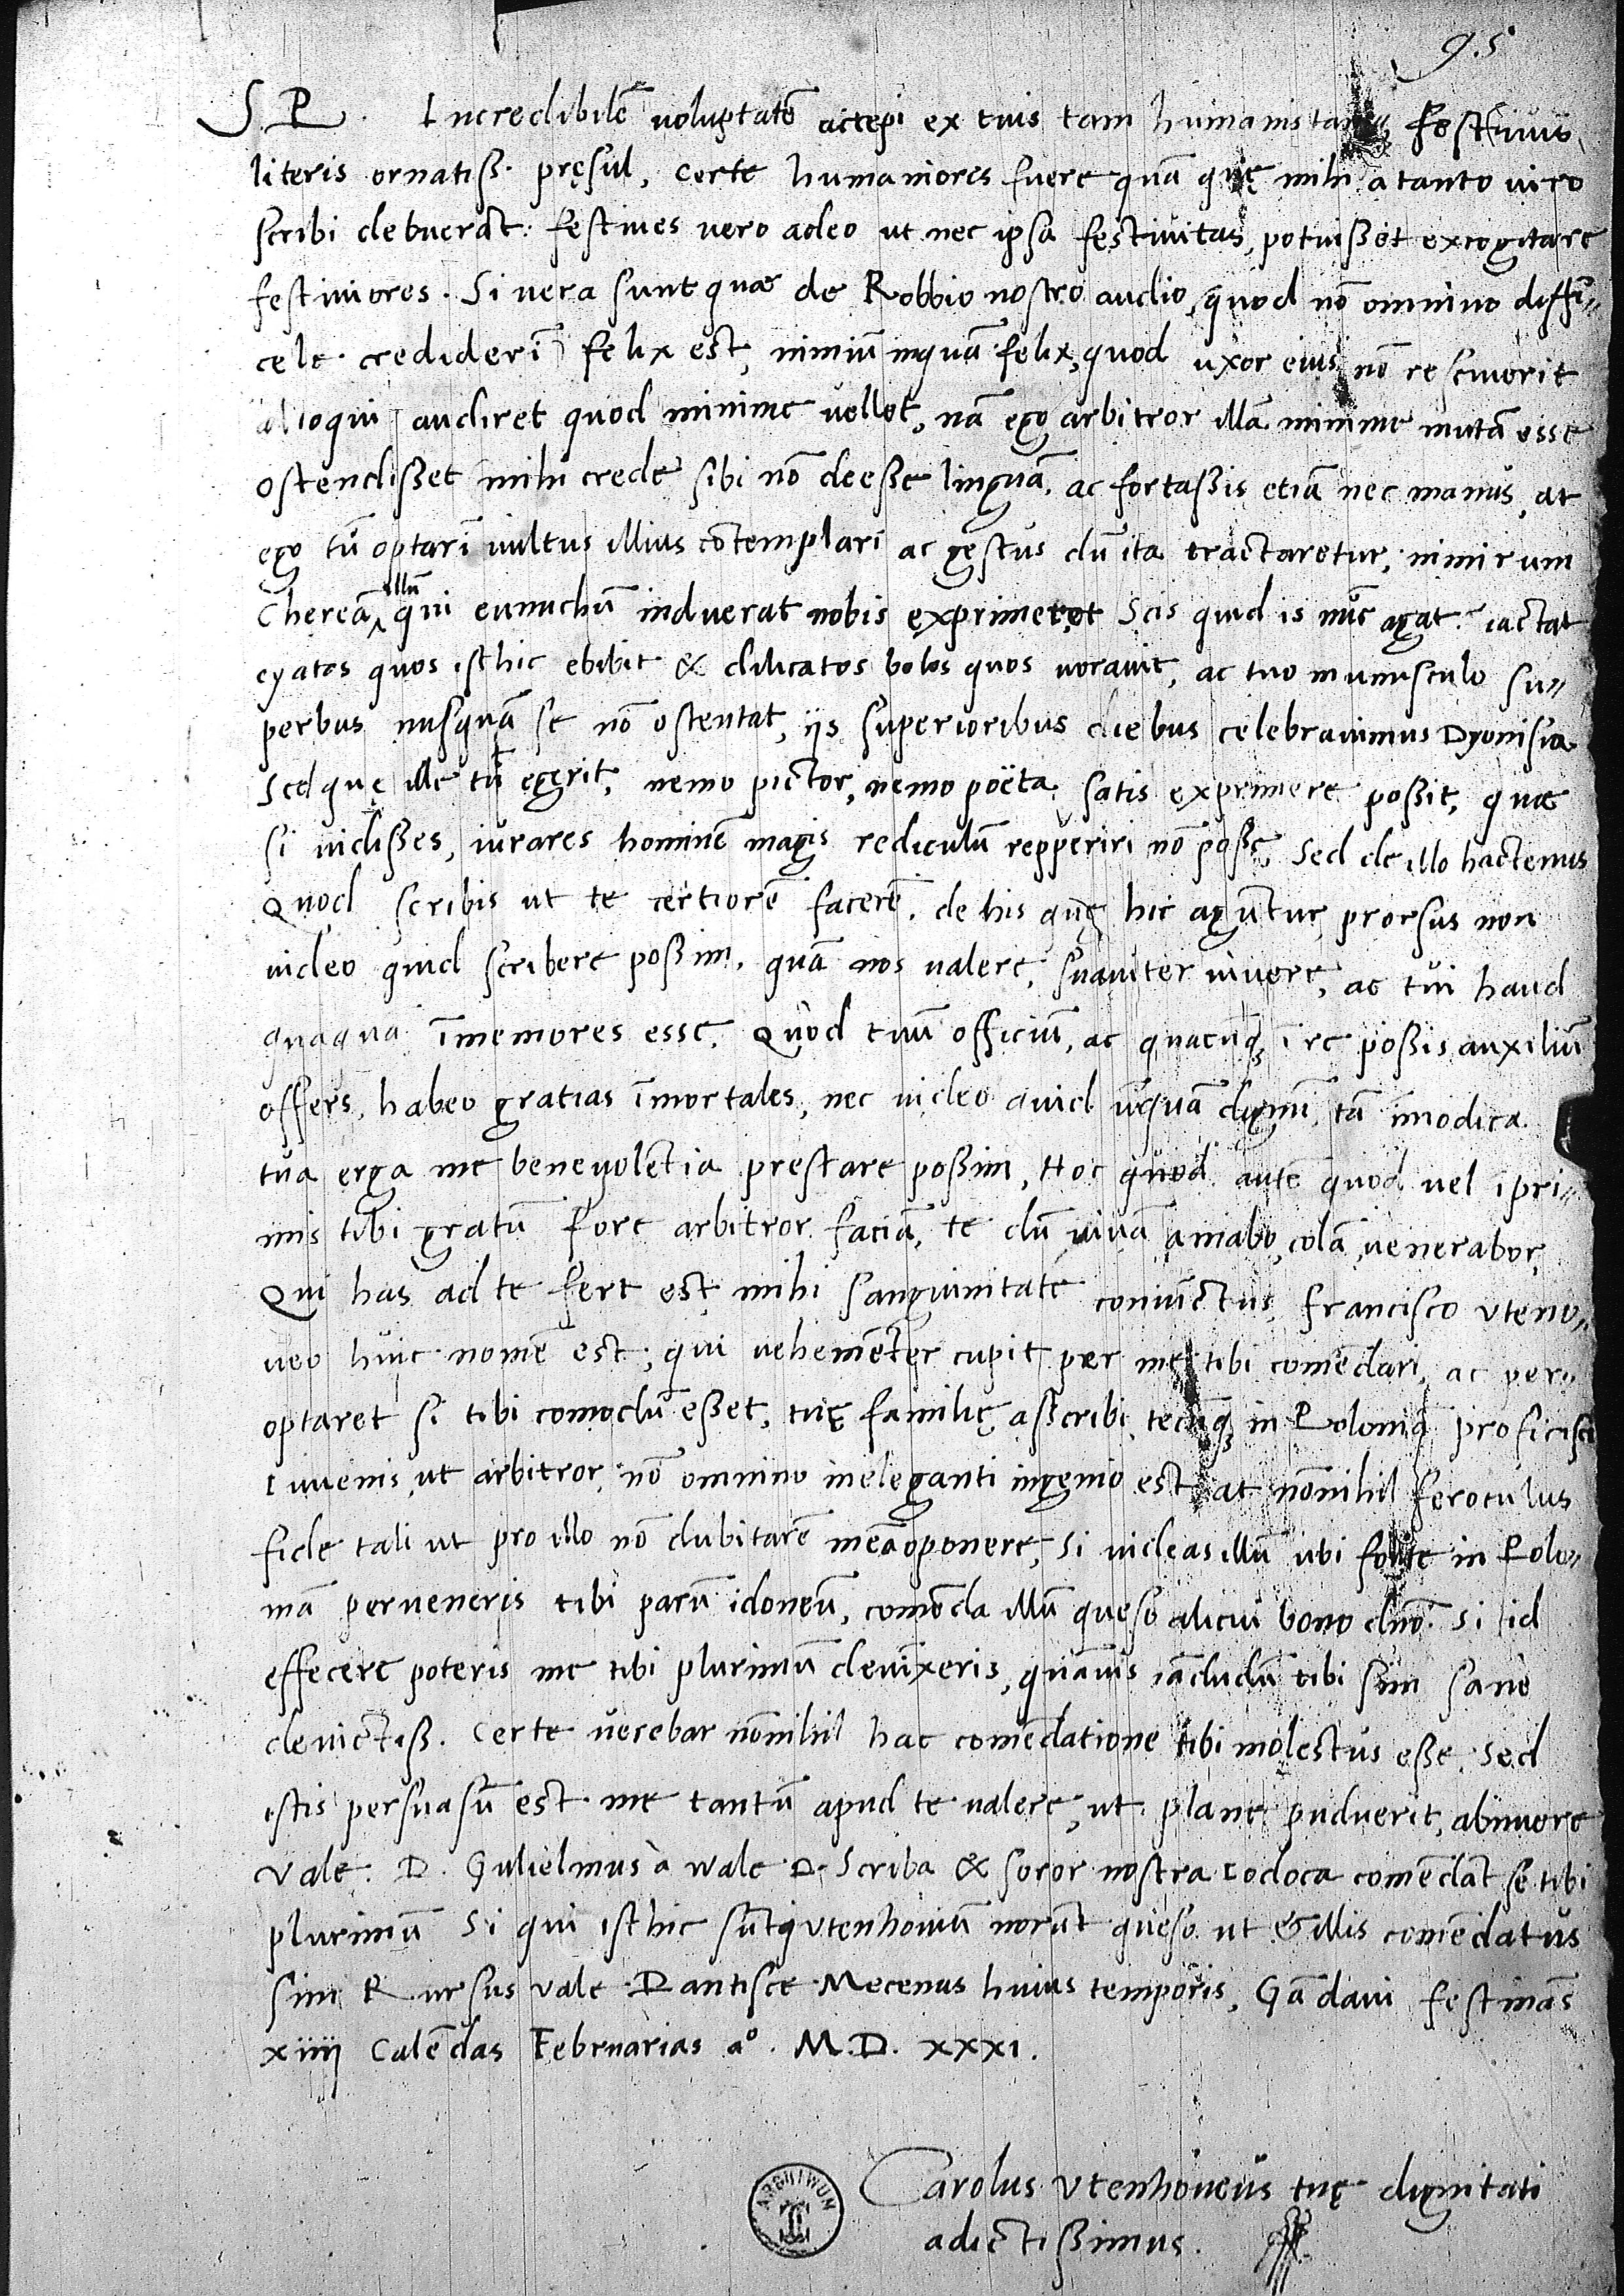 95
S. P. Incredibilē voluptatē accepi ex tuis tam humanis tamq̨ festiuis
literis ornatiß. pręsul, certe humaniores fuere quā quę mihi a tanto uiro
scribi debuerāt. festiues uero adeo ut nec ipsa festiuitas, potuißet excogitare
festiuiores. Si uera sunt quæ de Robbio nostro audio, quod nō omnino diffi⸗
cele credideri ̄ felix est, nimiū inquā felix, quod uxor eius nō resciuerit
alioqui audiret quod minime uellet, nā ego arbitror illā minime mutā esse
ostendißet mihi crede sibi nō deeße linguā, ac fortaßis etiā nec manus, at
ego tū optari ̄ uultus illius cōtemplari ac gestus dū ita tractaretur, nimirum
Chereā illū qui eunuchū induerat nobis exprimeret Scis quid is nūc agat? iactat
cyatos quos isthic ebibit & dilicatos bolos quos uorauit, ac tuo munusculo su⸗
perbus nusquā se nō ostentat, iis superioribus diebus celebrauimus Dyonisia
Sed quę ille tū egerit, nemo pictor, nemo poëta satis exprimere poßit, quæ
si uidißes, iurares hominē magis rediculū repperiri nō poße, Sed de illo hactenus
Quod scribis ut te certiorē facerē. de his quę hic agūtur prorsus non
uideo quid scribere poßim, quā nos ualere, suauiter uiuere, ac tui haud
quaqua īmemores esse. Quod tuū officiū, ac quacūq̨ ī re poßis auxiliū
offers, habeo gratias īmortales, nec uideo quid unquā dignū tā īmodica
tua erga me beneuolētia prestare poßim, Hoc quod autē quod uel ī pri⸗
mis tibi gratū fore arbitror faciā, te dū uiuā amabo, colā, venerabor,
Qui has ad te fert est mihi sanguinitate coniūctus, francisco uteno⸗
ueo huic nomē est, qui uehemēter cupit per me tibi comēdari, ac per⸗
optaret si tibi comodū eßet, tuę familię asscribi, tecūq̨ in Poloniā proficisci
Iuuenis ut arbitror nō omnino ineleganti ingenio est, at nōnihil feroculus
fide tali ut pro illo nō dubitarē meā oponere, Si uideas illū ubi in Polo⸗
niā perueneris tibi parū idoneū, comēda illū queso alicui bono dno. Si id
effecere poteris me tibi plurimū deuīxeris, quāuis iādudū tibi sim sane
deuictiß. Certe uerebar nōnihil hac comēdatione tibi molestus eße, Sed
istis persuasū est me tantū apud te ualere, ut plane puduerit, abnuere
Vale. D. Gulielmus à wale D. Scriba & soror nostra Iodoca comēdāt se tibi
plurimū Si qui isthic sūt q utenhouiū norūt queso ut & illis comēdatus
sim Rursus vale Dantisce Mecenas huius temporis, Gādaui festinās
xiiij Calēdas Februarias aº. M.D. xxxi.
Carolus Vtenhoueus tuę dignitati
adictißimus.
ARCHIWUM